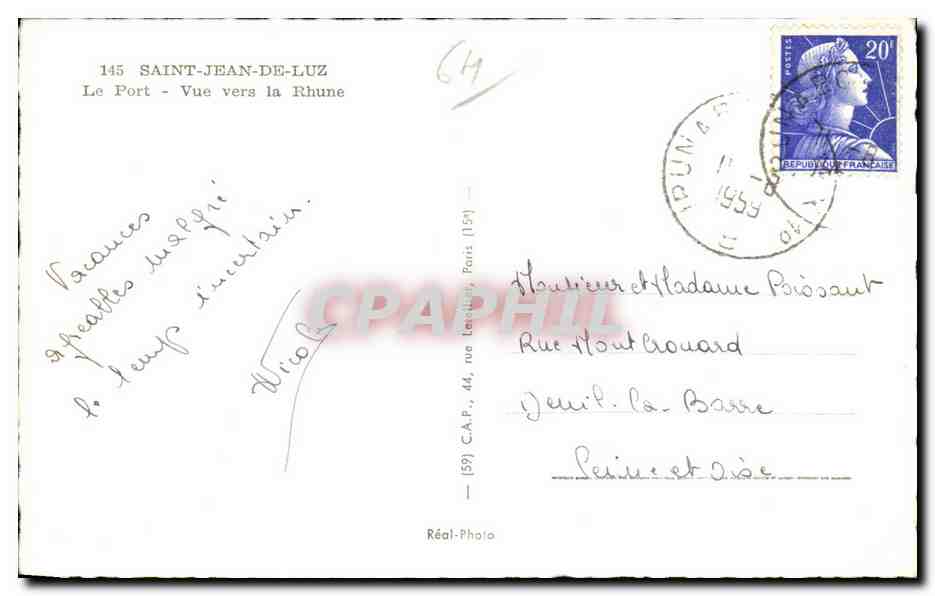 145 SAINT-JEAN-DE-LUZ
Le Port - Vue vers la Rhune
64
POSTES
20F
REPUBLIQUE FRANÇAISE
1959
Vacances
agréables malgré
le temps incertain.
Nicole
CPAPHIL
— (59) C.A.P., 44, rue Letellier, Paris (15e) —
Monsieur et Madame Poissant
Rue Mont Crouard
Deuil-la-Barre
Seine et Oise
Réal-Photo